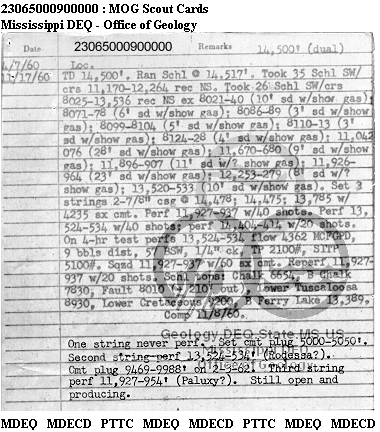 23065000900000 : MOG Scout Cards
Mississippi DEQ - Office of Geology
Date 23065000900000 Remarks 14,500' (dual)
4/7/60 Loc.
11/17/60 TD 14,500'. Ran Schl @ 14,517'. Took 35 Schl SW/
crs 11,170-12,264 rec NS. Took 26 Schl SW/crs
8025-13,536 rec NS ex 8021-40 (10' sd w/show gas);
8071-78 (6' sd w/show gas); 8086-89 (3' sd w/show
gas); 8099-8104 (5' sd w/show gas); 8110-13 (3'
sd w/show gas); 8124-28 (4' sd w/show gas); 11,042
076 (28' sd w/show gas); 11,670-680 (9' sd w/show
gas); 11,896-907 (11' sd w/? show gas); 11,926-
964 (23' sd w/show gas); 12,253-279 (8' sd w/?
show gas); 13,520-533 (10' sd w/show gas). Set 3
strings 2-7/8" csg @ 14,478; 14,475; 13,785 w/
4235 sx cmt. Perf 11,927-937 w/40 shots. Perf 13,
524-534 w/40 shots; perf 14,404-414 w/20 shots.
On 4-hr test perfs 13,524-534 flow 4362 MCFGPD,
9 bbls dist, BSW, 1/4" ck, TP 2100#, SITP
5100#. Sqzd 11,927-937 w/60 sx cmt. Reperf 11,927-
937 w/20 shots. Schl tops: Chalk 6654, B Chalk
7830, Fault 8010 (210' out), Lower Tuscaloosa
8930, Lower Cretaceous 9200, B Ferry Lake 13,389.
Comp 11/8/60.
Geology.DEQ.State.MS.US
One string never perf. Set cmt plug 5000-5050'.
Second string perf 13,524-534' (Rodessa?).
Cmt plug 9469-9988' on 2-3-62. Third string
perf 11,927-954' (Paluxy?). Still open and
producing.
MDEQ MDECD PTTC MDEQ MDECD PTTC MDEQ MDECD